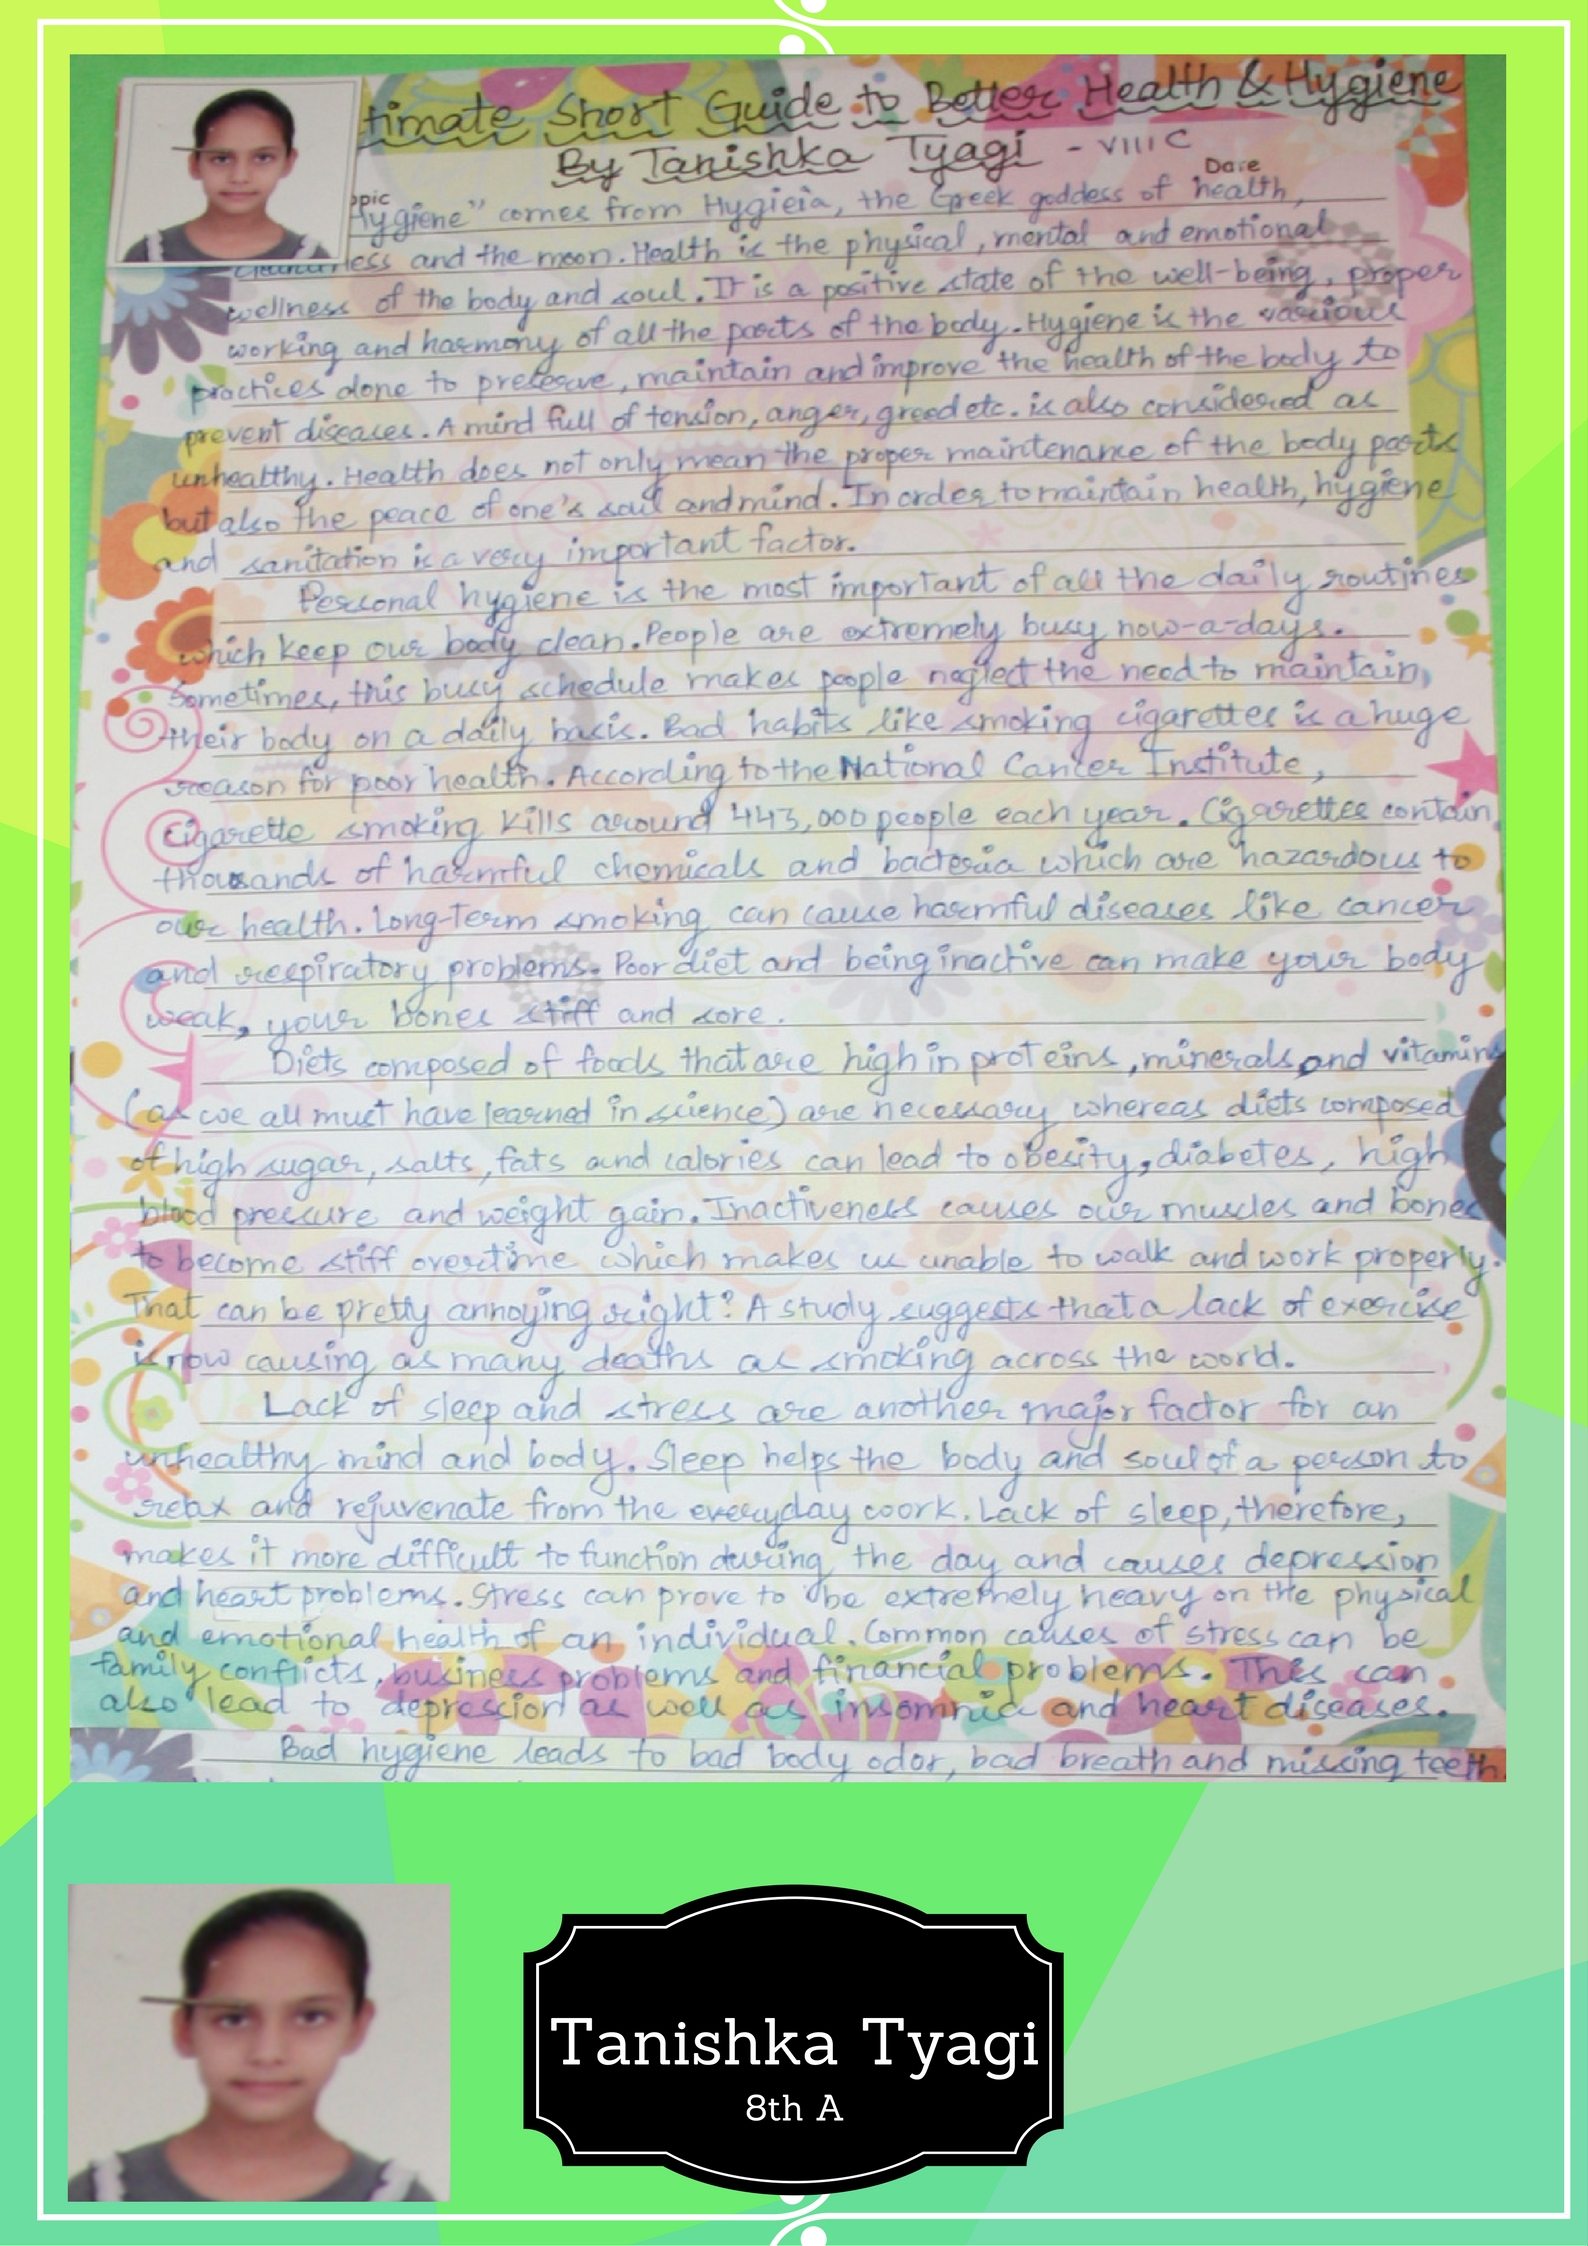 timate Short Guide to Better Health & Hygiene
By Tanishka Tyagi - VIII C
Date
opic
Hygiene" comes from Hygieia, the Greek goddess of health,
ness and the moon. Health is the physical, mental and emotional
wellness of the body and soul. It is a positive state of the well-being, proper
working and harmony of all the parts of the body. Hygiene is the various
practices done to preserve, maintain and improve the health of the body to
prevent diseases. A mind full of tension, anger, greed etc. is also considered as
unhealthy. Health does not only mean the proper maintenance of the body parts
but also the peace of one's soul and mind. In order to maintain health, hygiene
and sanitation is a very important factor.
Personal hygiene is the most important of all the daily routines
which keep our body clean. People are extremely busy now-a-days.
Sometimes, this busy schedule makes people neglect the need to maintain
their body on a daily basis. Bad habits like smoking cigarettes is a huge
reason for poor health. According to the National Cancer Institute,
cigarette smoking kills around 443,000 people each year. Cigarettes contain
thousands of harmful chemicals and bacteria which are hazardous to
our health. Long-Term smoking can cause harmful diseases like cancer
and respiratory problems. Poor diet and being inactive can make your body
weak, your bones stiff and sore.
Diets composed of foods that are high in proteins, minerals and vitamins
(as we all must have learned in science) are necessary whereas diets composed
of high sugar, salts, fats and calories can lead to obesity, diabetes, high
blood pressure and weight gain. Inactiveness causes our muscles and bones
to become stiff overtime which makes us unable to walk and work properly.
That can be pretty annoying right? A study suggests that a lack of exercise
is now causing as many deaths as smoking across the world.
Lack of sleep and stress are another major factor for an
unhealthy mind and body. Sleep helps the body and soul of a person to
relax and rejuvenate from the everyday work. Lack of sleep, therefore,
makes it more difficult to function during the day and causes depression
and heart problems. Stress can prove to be extremely heavy on the physical
and emotional health of an individual. Common causes of stress can be
family conflicts, business problems and financial problems. This can
also lead to depression as well as insomnia and heart diseases.
Bad hygiene leads to bad body odor, bad breath and missing teeth.
Tanishka Tyagi
8th A